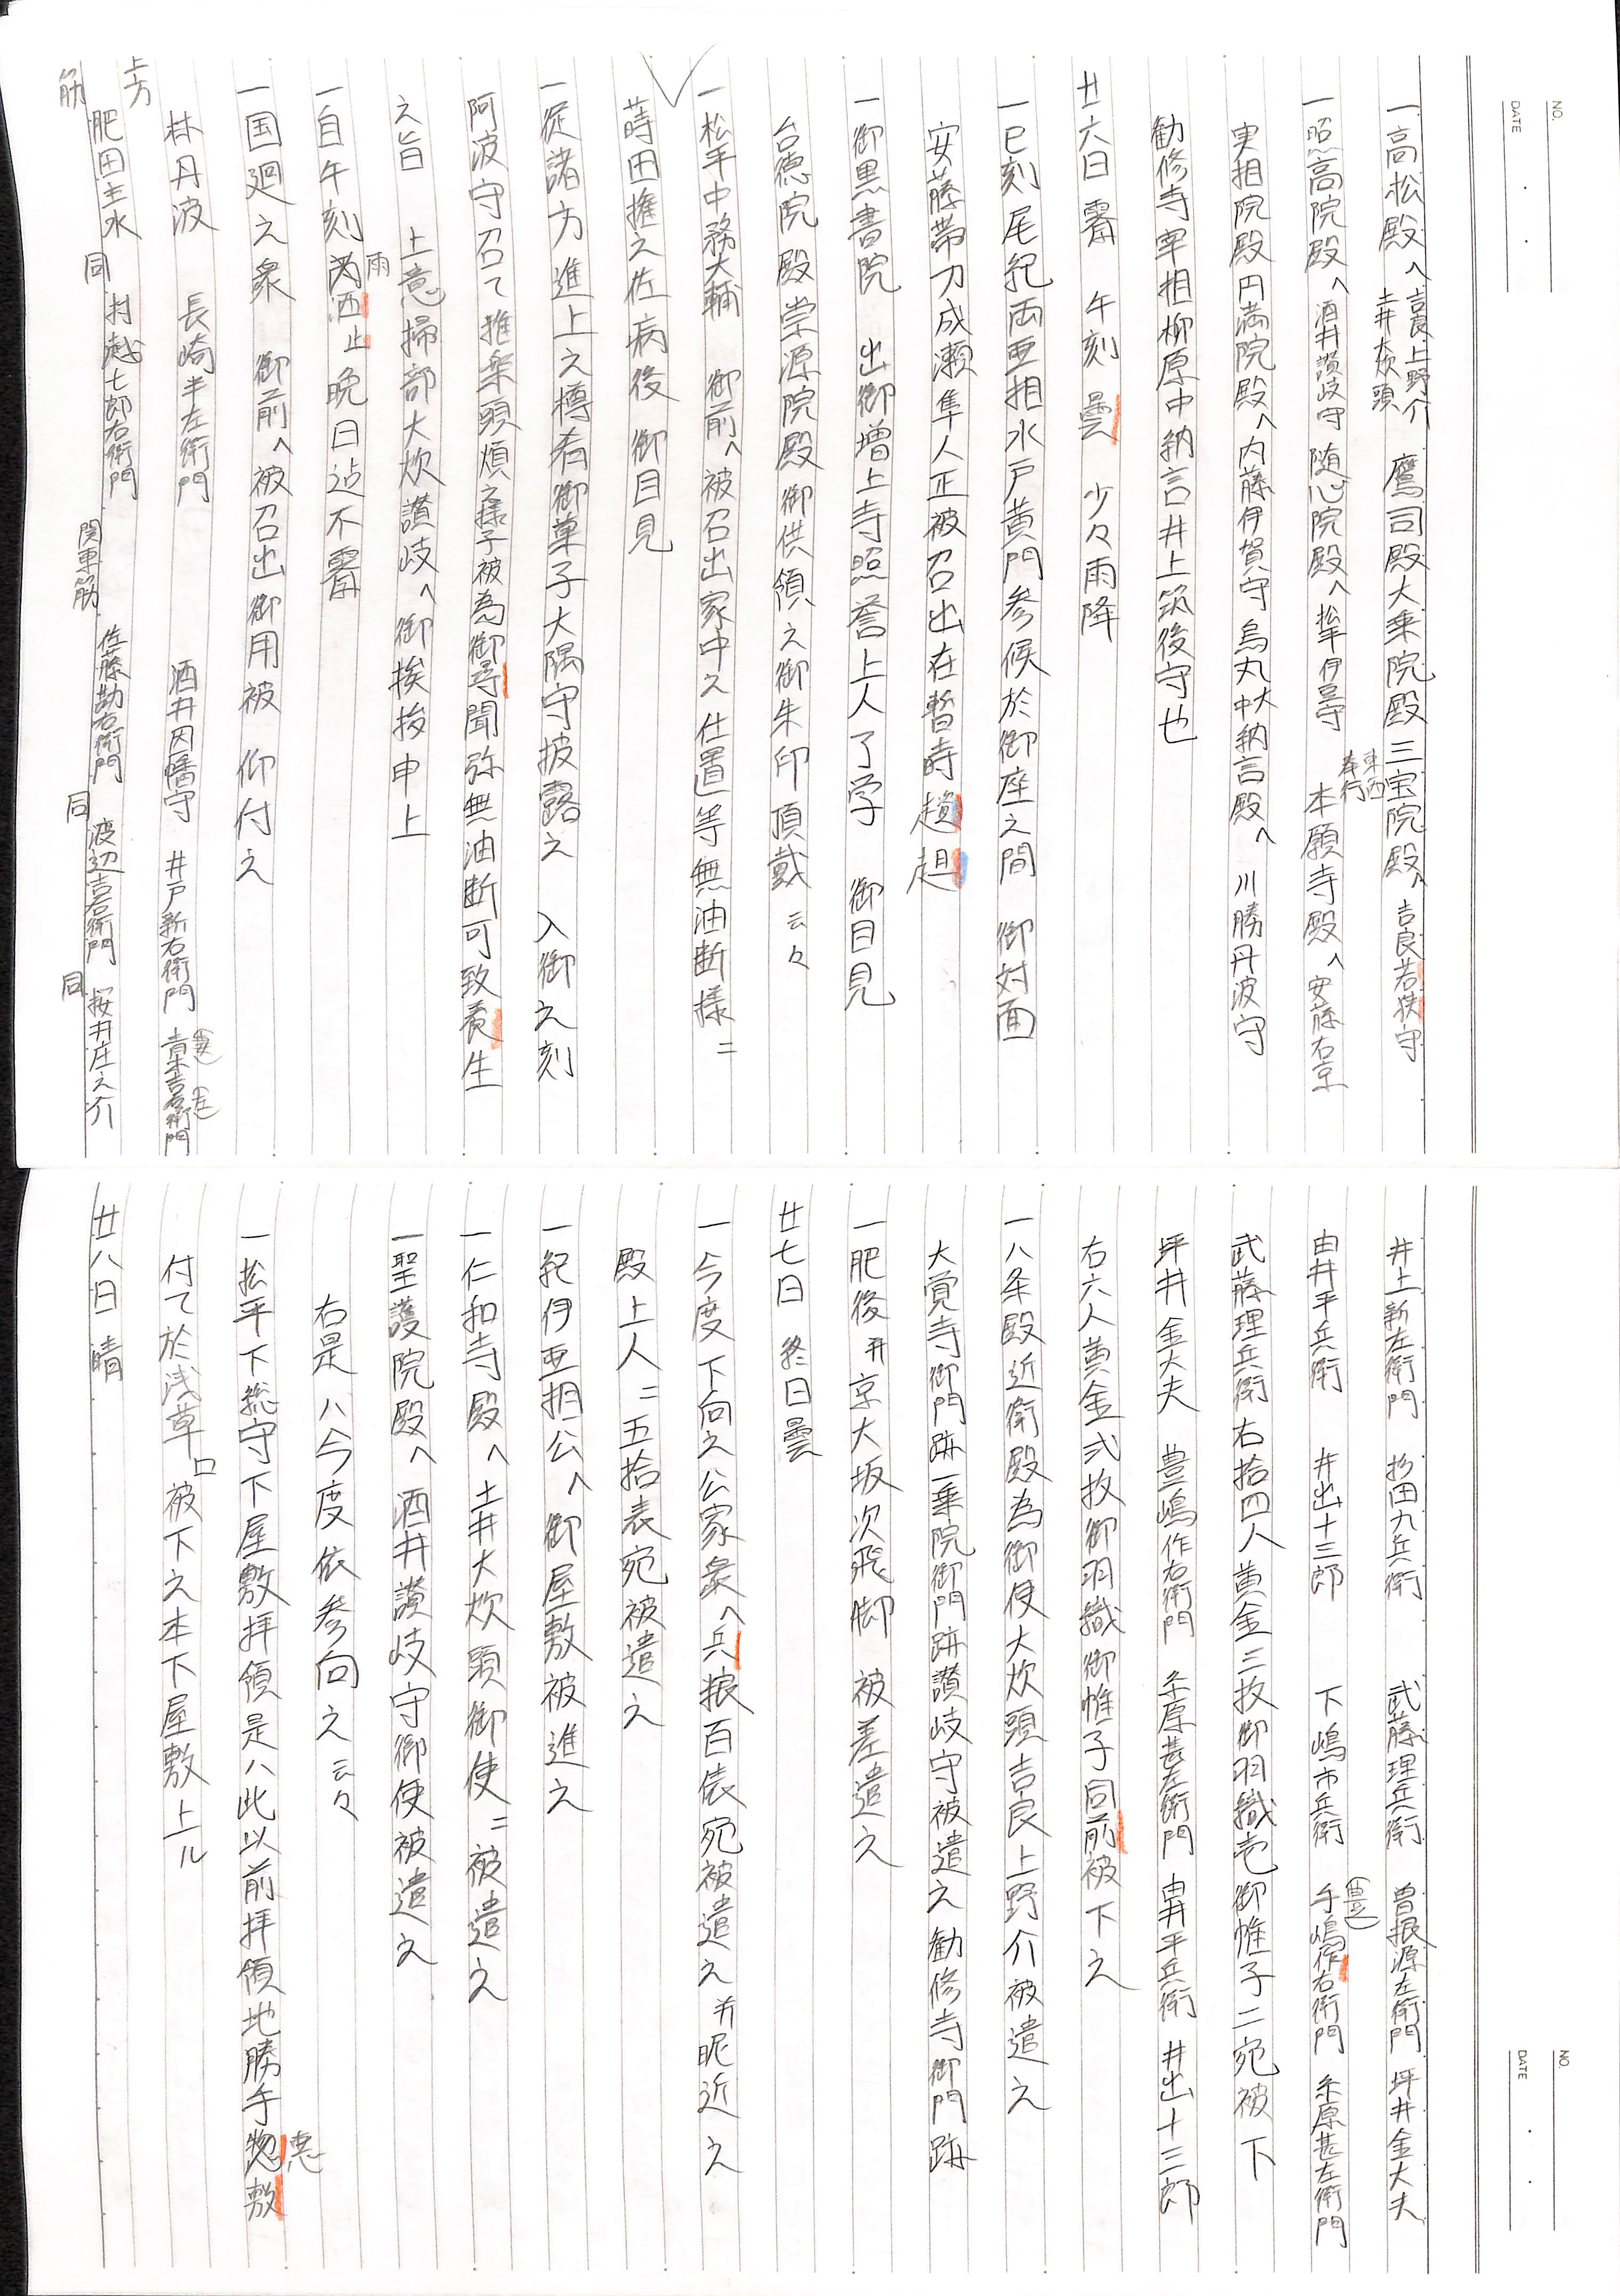 NO.
DATE
一高松殿へ吉良上野介 土井大炊頭 鷹司殿大乗院殿三宝院殿へ吉良若狭守
一照高院殿へ酒井讃岐守 随心院殿へ松平伊豆守 東西 奉行 本願寺殿へ安藤右京
実相院殿円満院殿へ内藤伊賀守 烏丸大中納言殿へ 川勝丹波守
勧修寺宰相柳原中納言井上筑後守也
廿六日 霽 午刻 曇 少々雨降
一巳刻尾紀両亜相水戸黄門参候於御座之間 御対面
安藤帯刀成瀬隼人正被召出在暫時趦趄
一御黒書院 出御増上寺照誉上人了学 御目見
台徳院殿崇源院殿御供領之御朱印頂戴云々
一松平中務大輔 御前へ被召出家中之仕置等無油断様ニ
蒔田権之佐病後御目見
一従諸方進上之樽肴御菓子大隅守披露之 入御之刻
阿波守召て推楽頭煩之様子被為御尋聞弥無油断可致養生
之旨 上意掃部大炊讃岐へ御挨拶申上
一自午刻雨芮洒止晩日迠不霽
一国廻之衆 御前へ被召出御用被 仰付之
林丹波 長崎半左衛門 酒井因幡守 井戸新右衛門 青木吉右衛門
上方筋 肥田主水 同 村越七郎右衛門 関東筋 佐藤勘右衛門 同 渡辺吉右衛門 同 桜井庄之介
NO.
DATE
井上新左衛門 杉田九兵衛 武藤理兵衛 曽根源左衛門 坪井金大夫
由井平兵衛 井出十三郎 下嶋市兵衛 手嶋作右衛門 (豊) 糸原甚左衛門
武藤理兵衛 右拾四人黄金三枚御羽織壱御帷子二宛被下
坪井金大夫 豊嶋作右衛門 糸原甚左衛門 由井平兵衛 井出十三郎
右六人黄金弐枚御羽織御帷子同前被下之
一八条殿近衛殿為御使大炊頭吉良上野介被遣之
大覚寺御門跡一乗院御門跡讃岐守被遣之勧修寺御門跡
一肥後并京大坂次飛脚 被差遣之
廿七日 終日曇
一今度下向之公家衆へ兵粮百俵宛被遣之并昵近之
殿上人ニ五拾表宛被遣之
一紀伊亜相公へ御屋敷被進之
一仁和寺殿へ土井大炊頭御使ニ被遣之
一聖護院殿へ酒井讃岐守御使被遣之
右是ハ今度依参向之云々
一松平下総守下屋敷拝領是ハ此以前拝領地勝手惣敷 悪
付て於浅草口被下之本下屋敷上ル
廿八日 晴